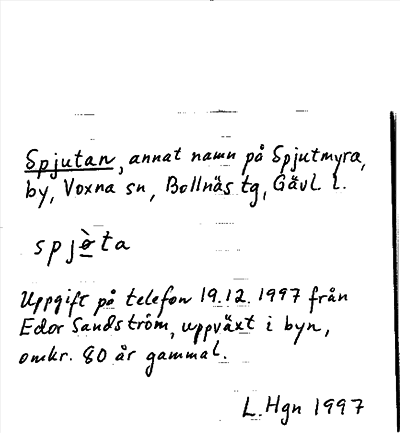 Spjutan, annat namn på Spjutmyra,
by, Voxna sn, Bollnäs tg, Gävl. l.
spjò̱ta
Uppgift på telefon 19.12.1997 från
Edor Sandström, uppväxt i byn,
omkr. 80 år gammal.
L. Hgn 1997